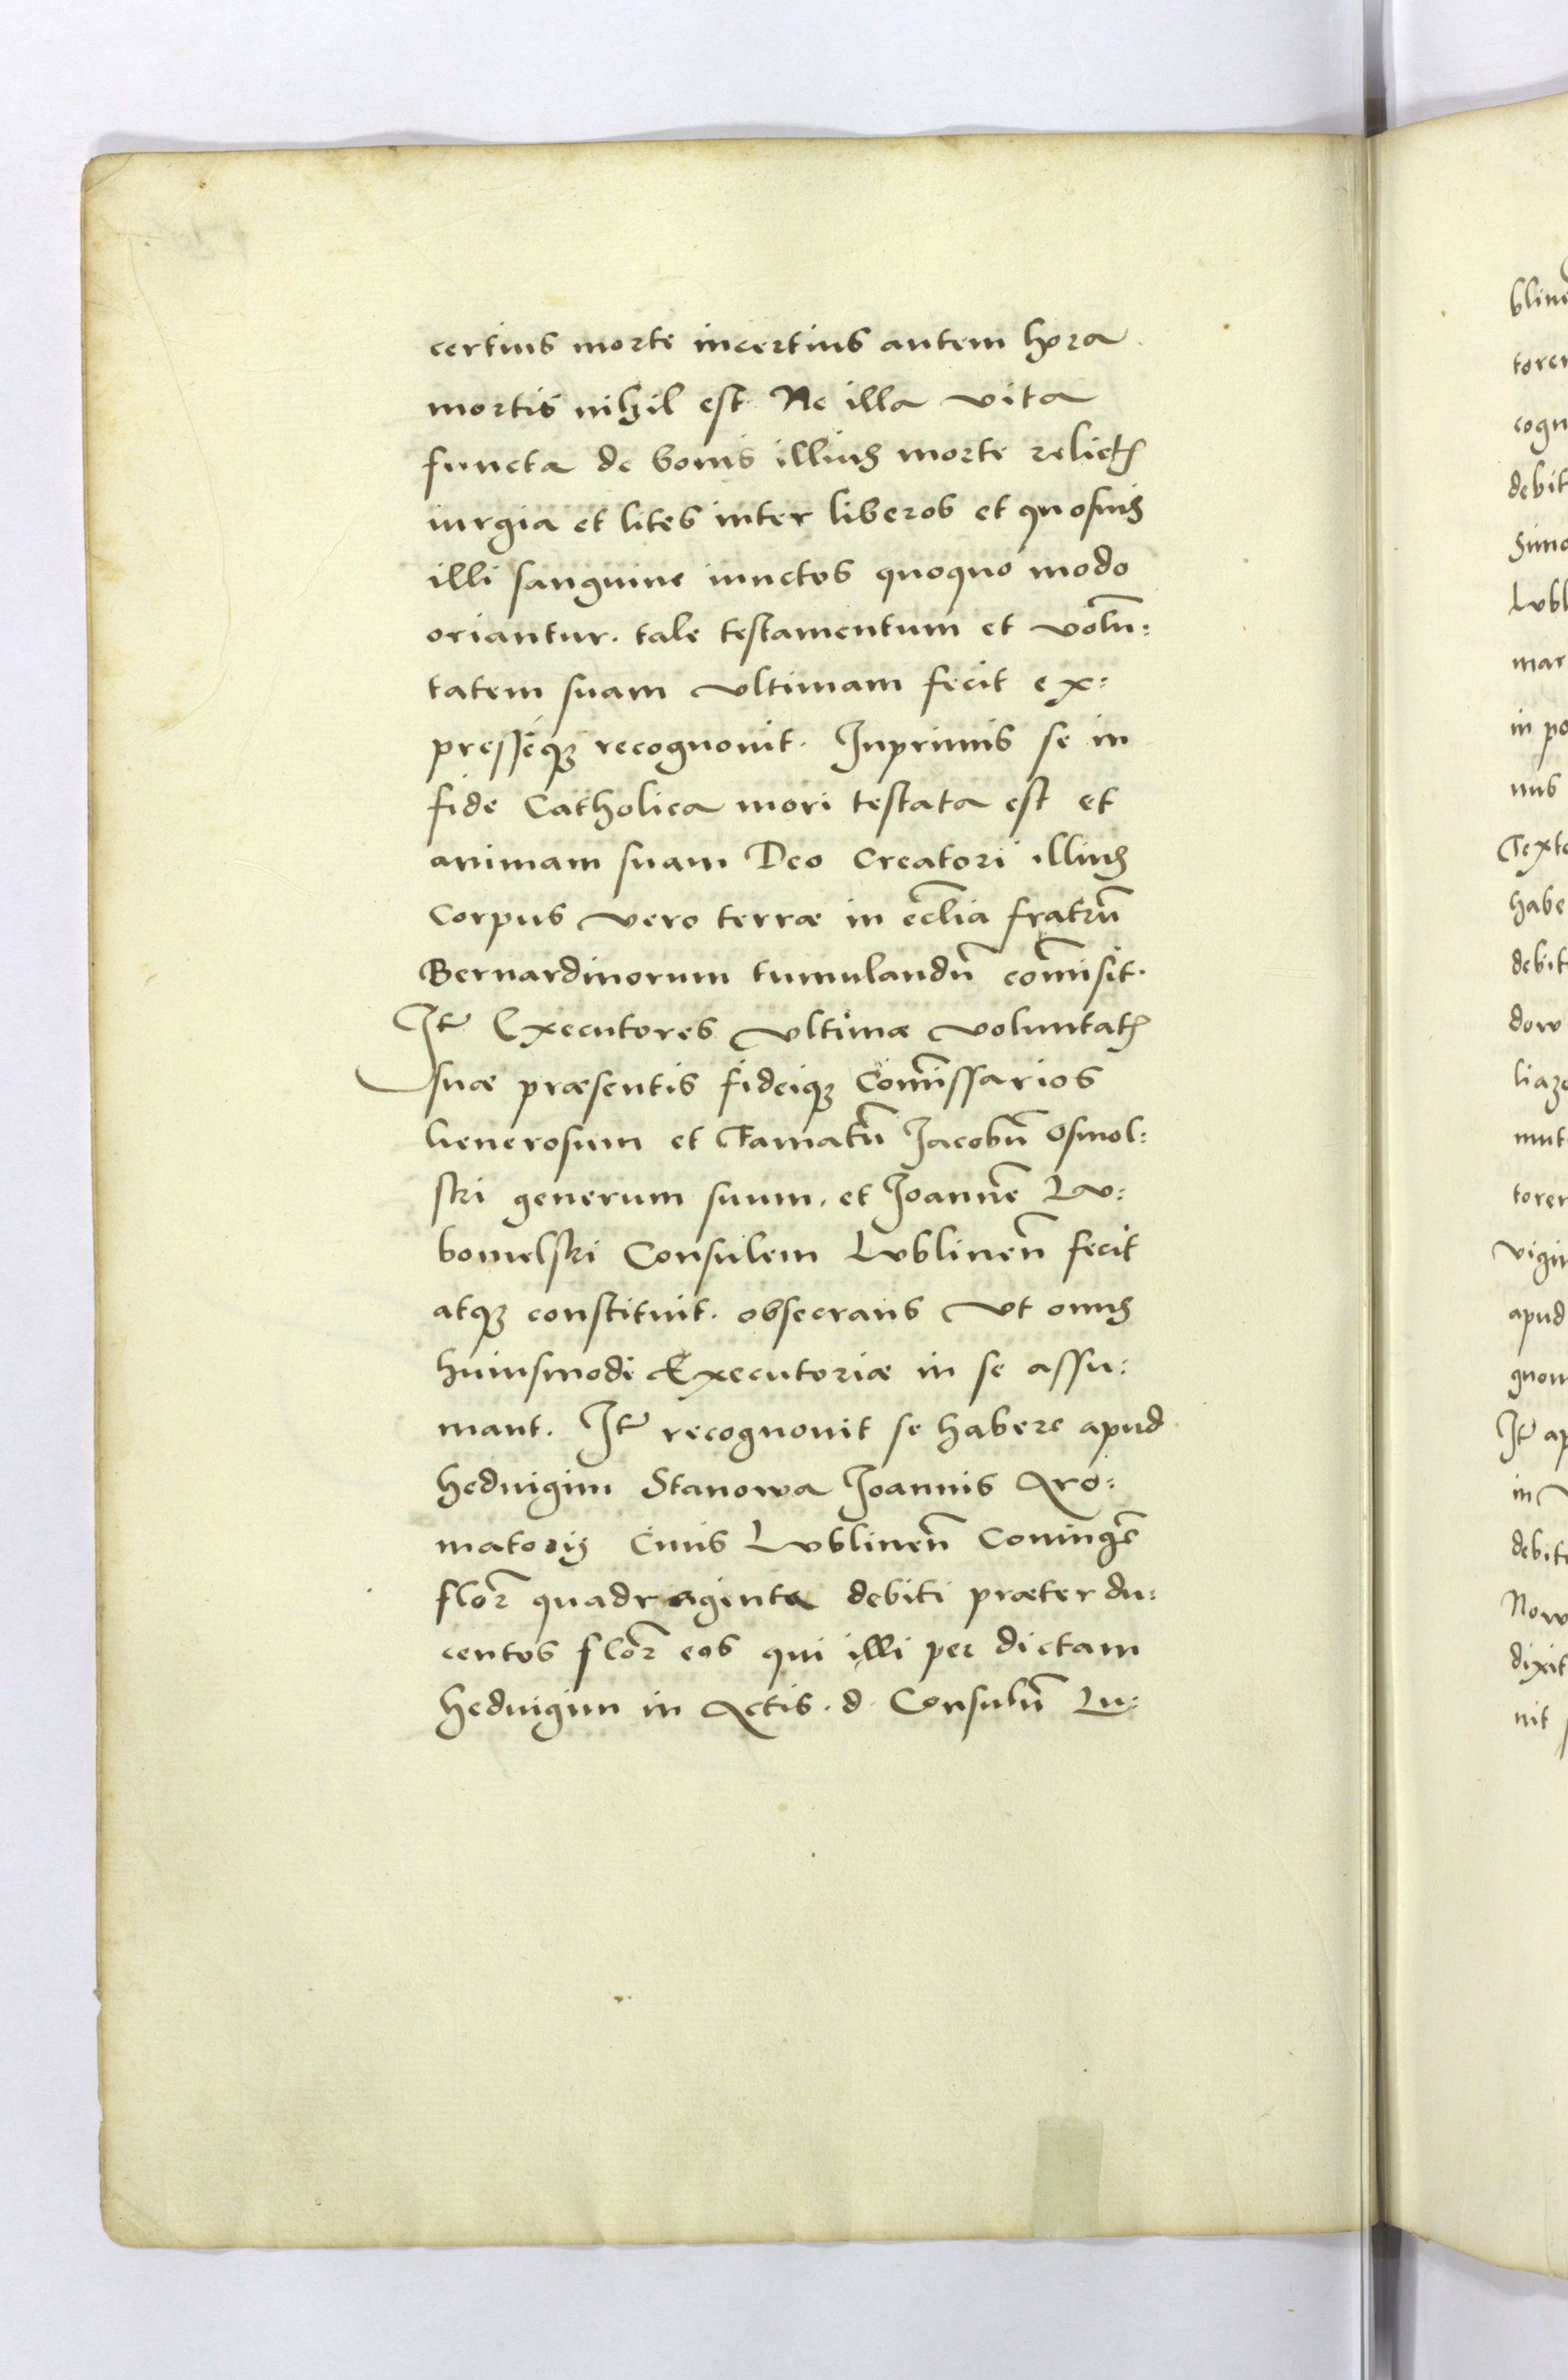 certius morte incertius autem hora
mortis nihil est. Ne illa vita
functa de bonis illius morte relictis
iurgia et lites inter liberos et quosuis
illi sanguine iunctos quoquo modo
oriantur. tale testamentum et volun:
tatem suam vltimam fecit ex:
presseqꝫ recognouit. Inprimis se in
fide Catholica mori testata est et
animam suam Deo Creatori illius
Corpus vero terræ in ecclia fratrū
Bernardinorum tumulandū comisit.
Itē Executores vltimæ voluntatis
suæ præsentis fideiqꝫ Comissarios
Generosum et Famatū Jacobū Osmol:
ski generum suum. et Joannē Lv:
bomelski Consulem Lvblinen̄ fecit
atqꝫ constituit. obsecrans vt onus
huiusmodi Executoriæ in se assu:
mant. Itē recognouit se habere apud
heduigim Stanowa Joannis Aro:
matorij Ciuis Lvblinen̄ Coniugē
flor̄ quadraginta debiti præter du:
centos flor̄ eos qui illi per dictam
heduigim in Actis. d. Consulū Lu:
blin
toren
cogn
debit
Lvbl
mar
in po
nus
Texto
habe
debit
dow
toren
vigin
apud
gnou
Itē ap
in
debit
Now
dixit
nit